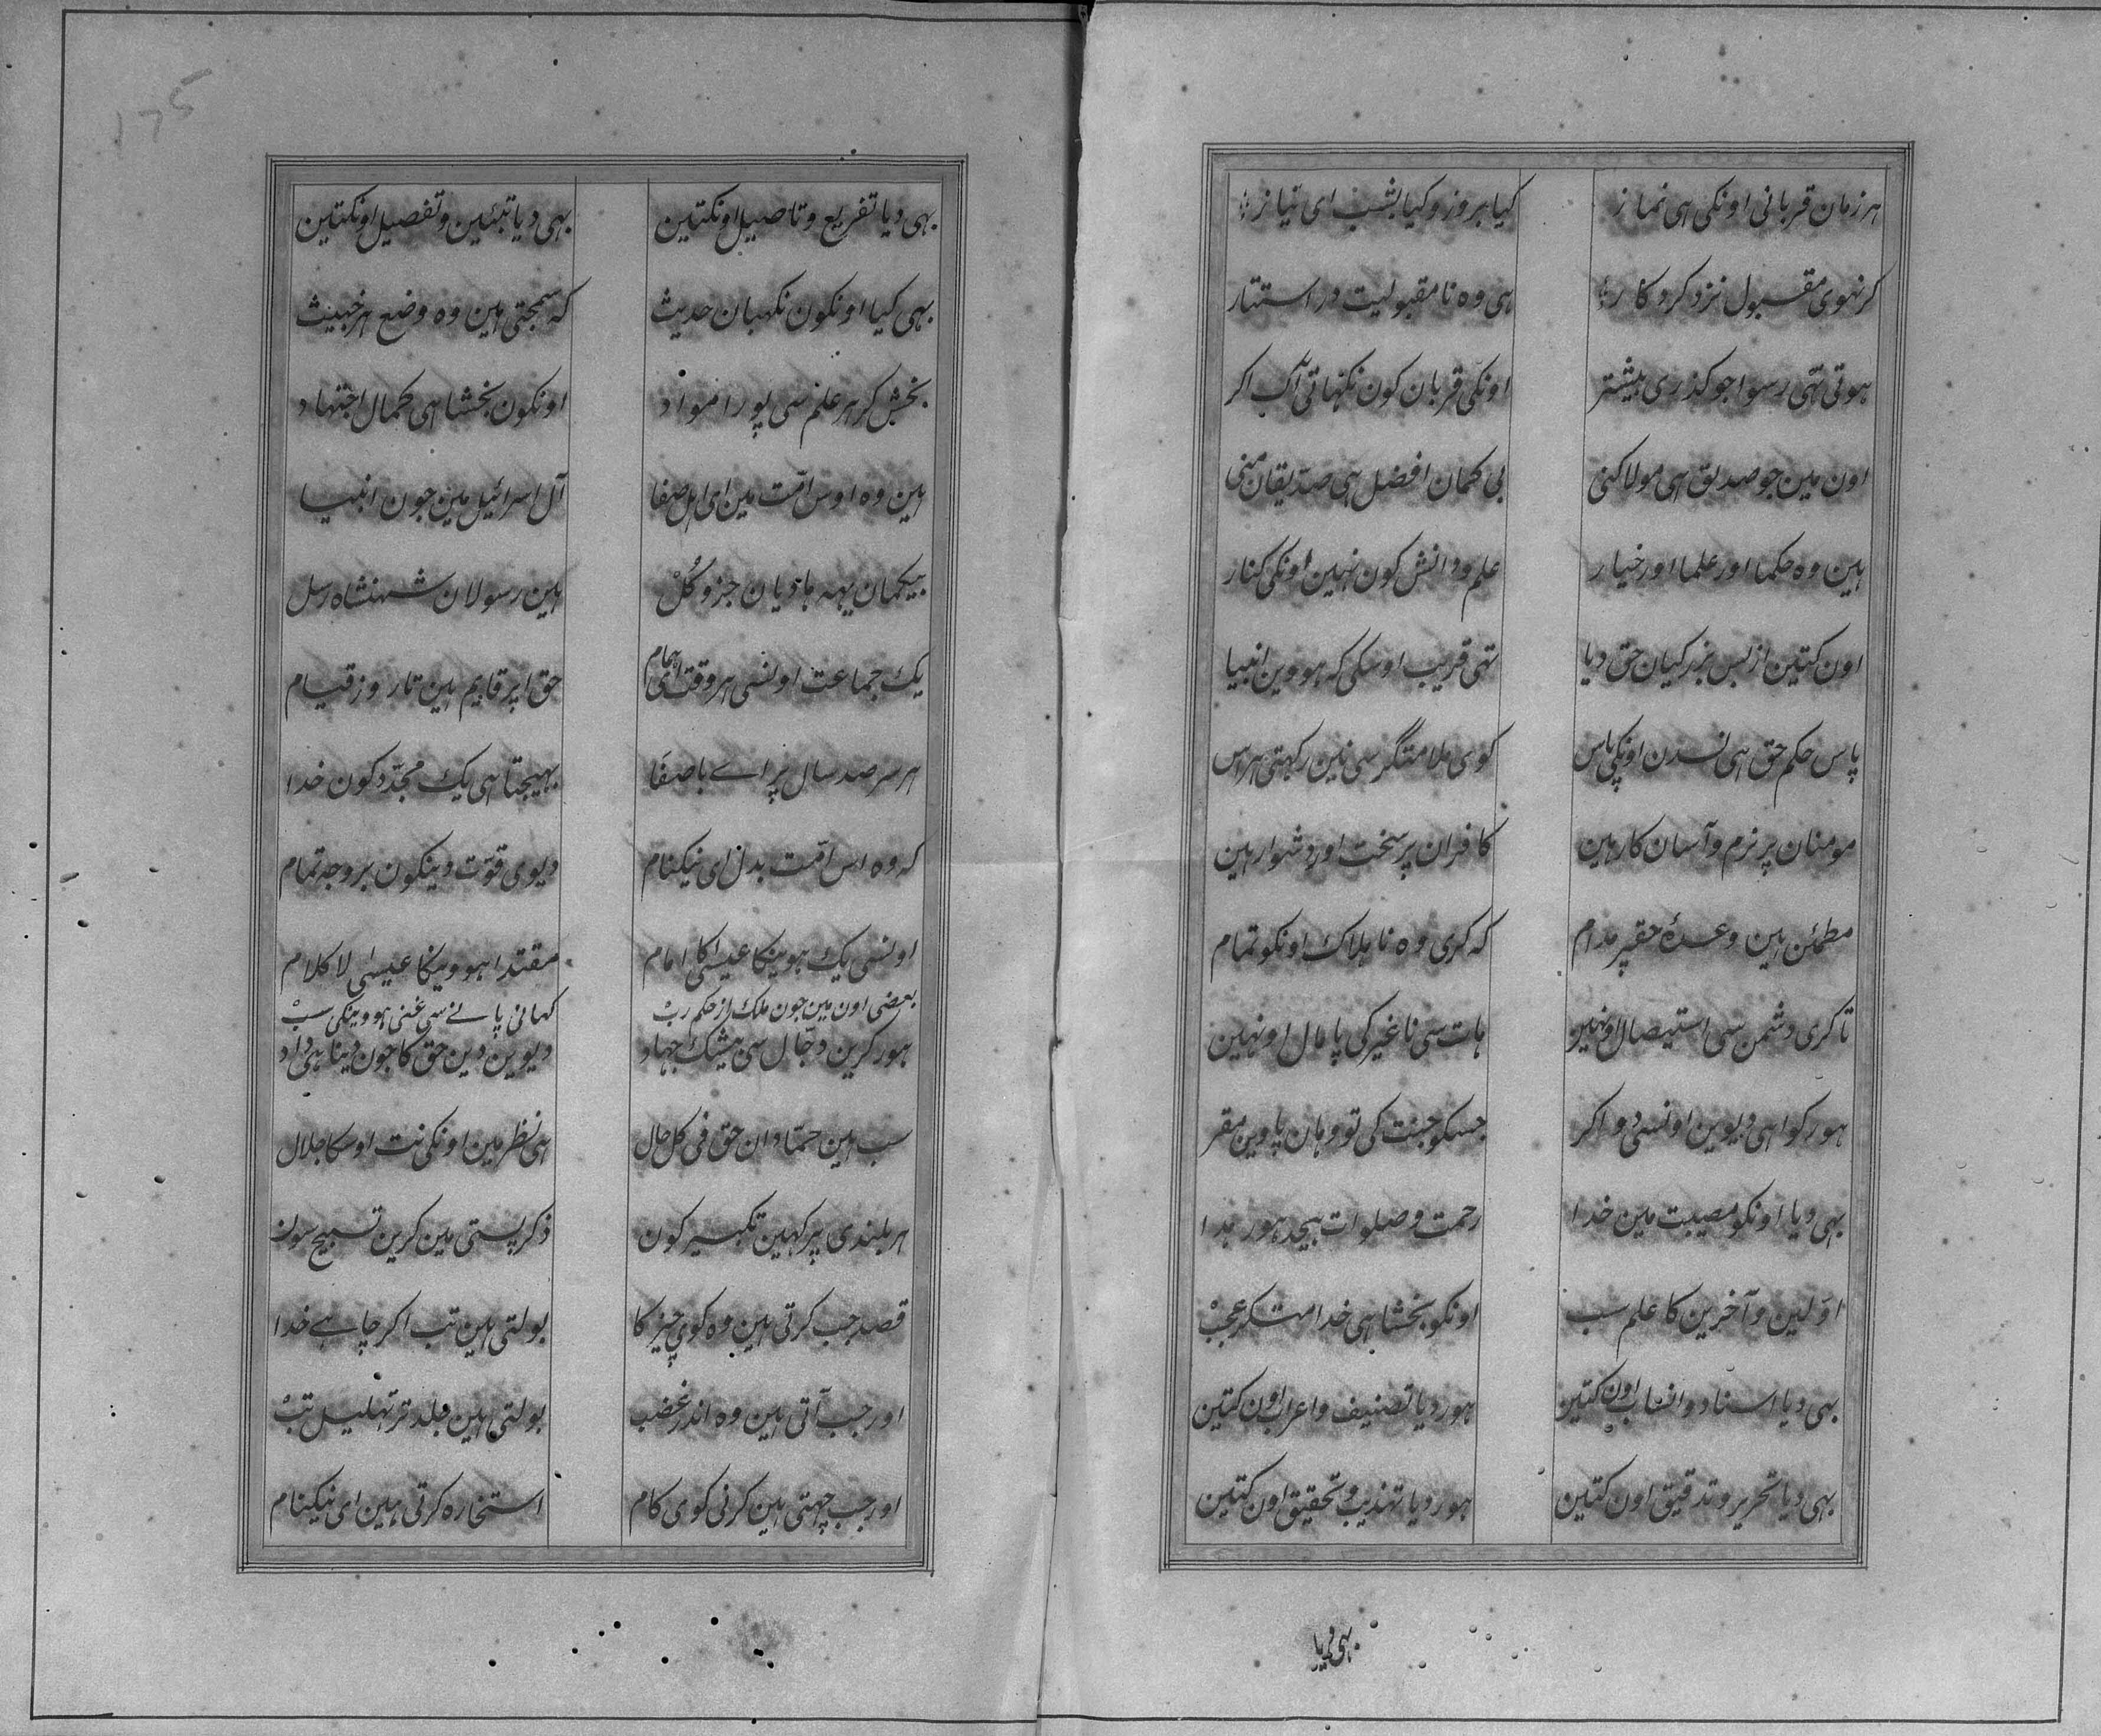 ہر زمان قربانی اونکی ہی نماز کیا بروز و کیا بشب ای نیاز
کر نہوی مقبول نزد کردکار ہی وہ نا مقبولیت در استتار
ہوتی تہی رسوا جو کذری پیشتر اونکی قربان کون نکہاتی آک اکر
اون مین جو صدیق ہی مولا کنی بی کمان افضل ہی صدیقان منی
ہین وہ حکما اور علما اور خیار علم و دانش کون نہین اونکی کنار
اون کتین از بس بزرکیان حق دیا تہی قریب اوسکی کہ ہووین انبیا
پاس حکم حق ہی نسدن اونکی پاس کوی ملامتکر سی نین رکہتی ہراس
مومنان پر نرم و آسان کار ہین کافران پر سخت اور دشوار ہین
مطمئن ہین وعدۂ حقپر مدام کہ کری وہ نا ہلاک اونکو تمام
تا کری دشمن سی استیصال اونہین ہات سی نا غیر کی پامال اونہین
ہور کواہی دیوین اونسی دو اکر جسکو جنت کی تو وہان پاوین مقر
بہی دیا اونکو مصیبت مین خدا رحمت و صلوات بیحد ہور ہدا
اولین و آخرین کا علم سب اونکو بخشا ہی خدا
بہی دیا اسناد و انساب اون کتین ہور دیا تصنیف و اعراب اون کتین
بہی دیا تحریر و تدقیق اون کتین ہور دیا تہذیب و تحقیق اون کتین
بہی دیا
175
بہی دیا تفریع و تاصیل اونکتین بہی دیا تبئین و تفصیل اونکتین
بہی کیا اونکون نکہبان حدیث کہ سمجتی ہین وہ وضع ہر خبیث
بخش کر ہر علم سی پورا مواد اونکون بخشا ہی کمال اجتہاد
ہین وہ اوس امّت مین ای اہل صفا آل اسرائیل مین جون انبیا
بیکمان یہہ ہادیان جز و کُلْ ہین رسولان شہنشاہ رسل
یک جماعت اونسی ہر وقت ای ہمام حق اپر قایم ہین تا روز قیام
ہر سر صد سال پر اے با صفا بہیجتا ہی یک مجدّد کون خدا
کہ وہ اس امّت بدل ای نیکنام دیوی قوّت دینکون بر وجہ تمام
اونسی یک ہوینکا عیسیٰ کا امام مقتدا ہووینکا عیسیٰ لا کلام
بعضی اون مین جون ملک از حکم ربْ کہانی پانے سی غنی ہووینکی سبْ
ہور کرین دجّال سی بیشک جہاد دیوین دین حق کا جون دینا ہی داد
سب ہین حمّادان حق فی کل حال ہی نظر مین اونکی نت اوسکا جلال
ہر بلندی پر کہین تکبیر کون ذکر پستی مین کرین تسبیح سون
قصد جب کرتی ہین وہ کوی چیز کا بولتی ہین تب اکر چاہے خدا
اور جب آتی ہین وہ اندر غضب بولتی ہین جلد تر تہلیل تبْ
اور جب چہتی ہین کرنی کوی کام استخارہ کرتی ہین ای نیکنام